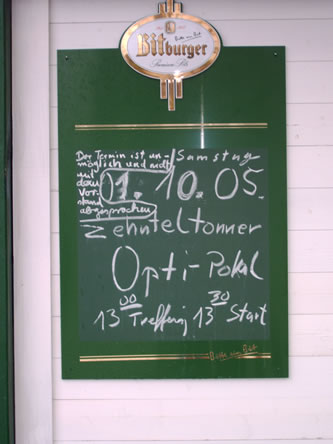 Bitte ein Bit
Bitburger
Premium Pils
Der Termin ist un-
möglich und nicht
mit
dem
Vor-
stand
abgesprochen
Samstag
01.10.05.
Zehnteltonner
Opti-Pokal
13 00 Treffen 13 30 Start
Bitte ein Bit